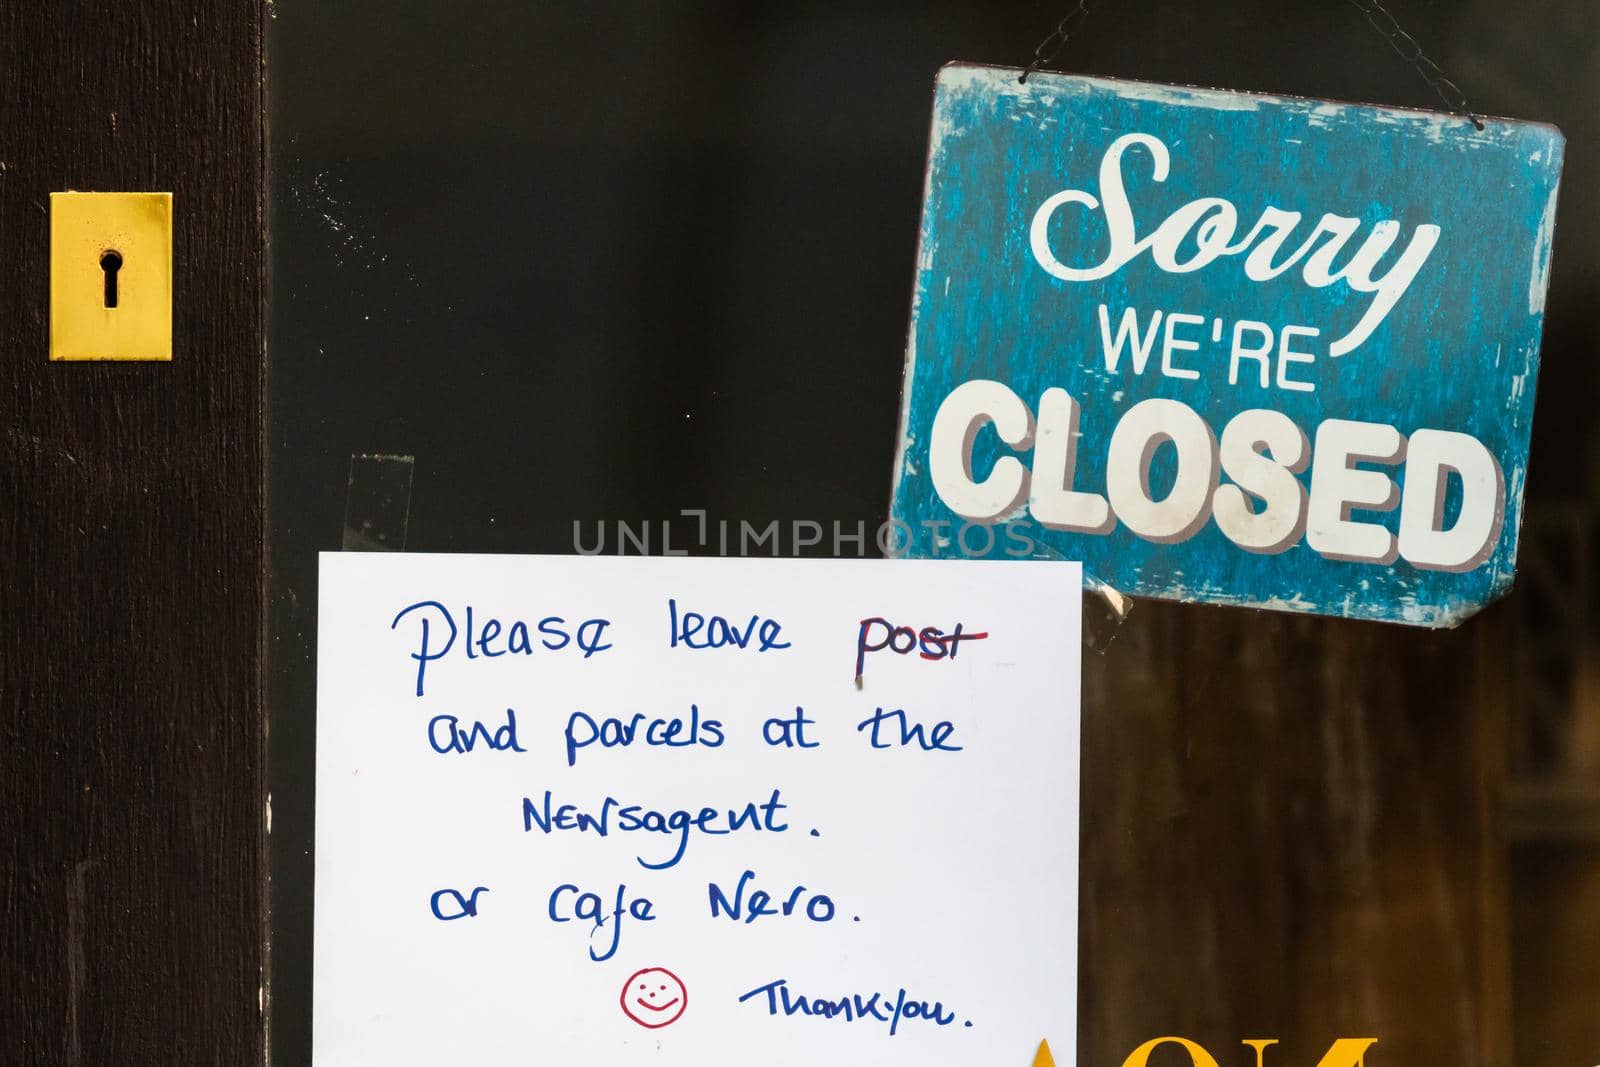 Sorry
WE'RE
CLOSED
UNLIMPHOTOS
Please leave post
and parcels at the
Newsagent.
or Cafe Nero.
Thank-you.